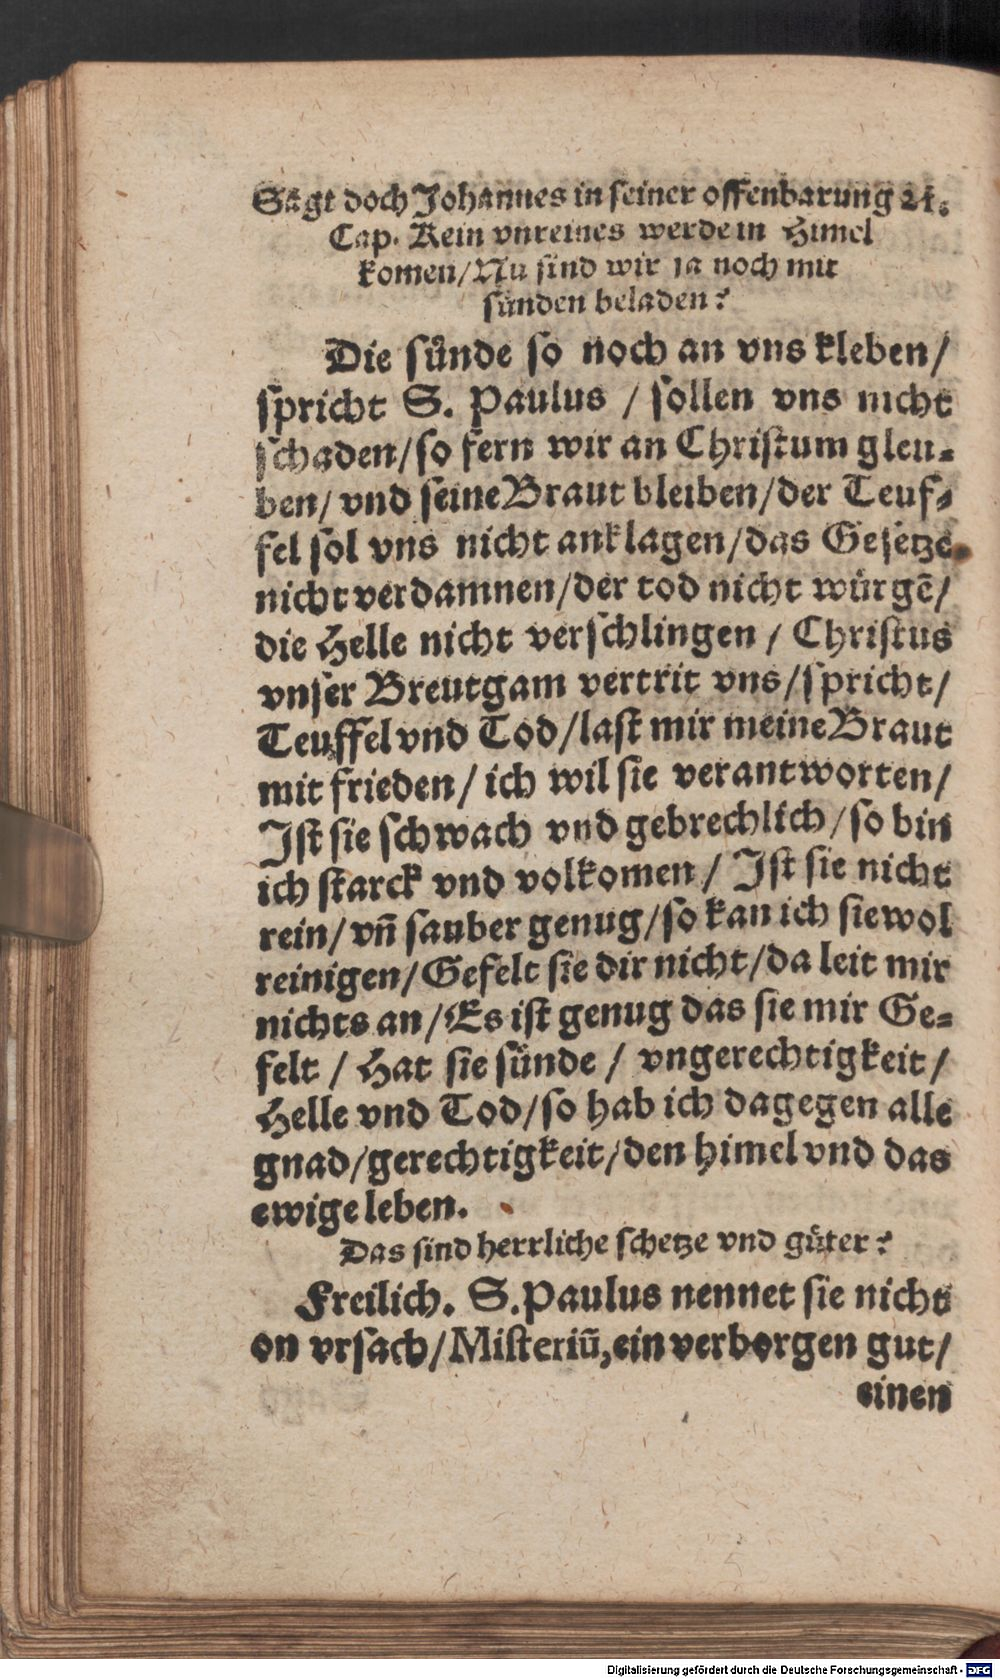 Sagt doch Johannes in seiner offenbarung 21.
Cap. Kein vnreines werde in Himel
komen/ Nu sind wir ja noch mit
sünden beladen?
Die sünde so noch an vns kleben/
spricht S. Paulus / sollen vns nicht
schaden/ so fern wir an Christum gleu⸗
ben/ vnd seine Braut bleiben/ der Teuf⸗
fel sol vns nicht anklagen/ das Gesetze
nicht verdamnen/ der tod nicht würgẽ/
die Helle nicht verschlingen / Christus
vnser Breutgam vertrit vns/ spricht/
Teuffel vnd Tod/ last mir meine Braut
mit frieden/ ich wil sie verantworten/
Ist sie schwach vnd gebrechlich/ so bin
ich starck vnd volkomen / Ist sie nicht
rein/ vñ sauber genug/ so kan ich sie wol
reinigen/ Gefelt sie dir nicht/ da leit mir
nichts an/ Es ist genug das sie mir Ge⸗
felt / Hat sie sünde / vngerechtigkeit/
Helle vnd Tod/ so hab ich dagegen alle
gnad/ gerechtigkeit/ den himel vnd das
ewige leben.
Das sind herrliche schetze vnd güter?
Freilich. S. Paulus nennet sie nicht
on vrsach/ Misteriũ, ein verborgen gut/
einen
Digitalisierung gefördert durch die Deutsche Forschungsgemeinschaft - DFG